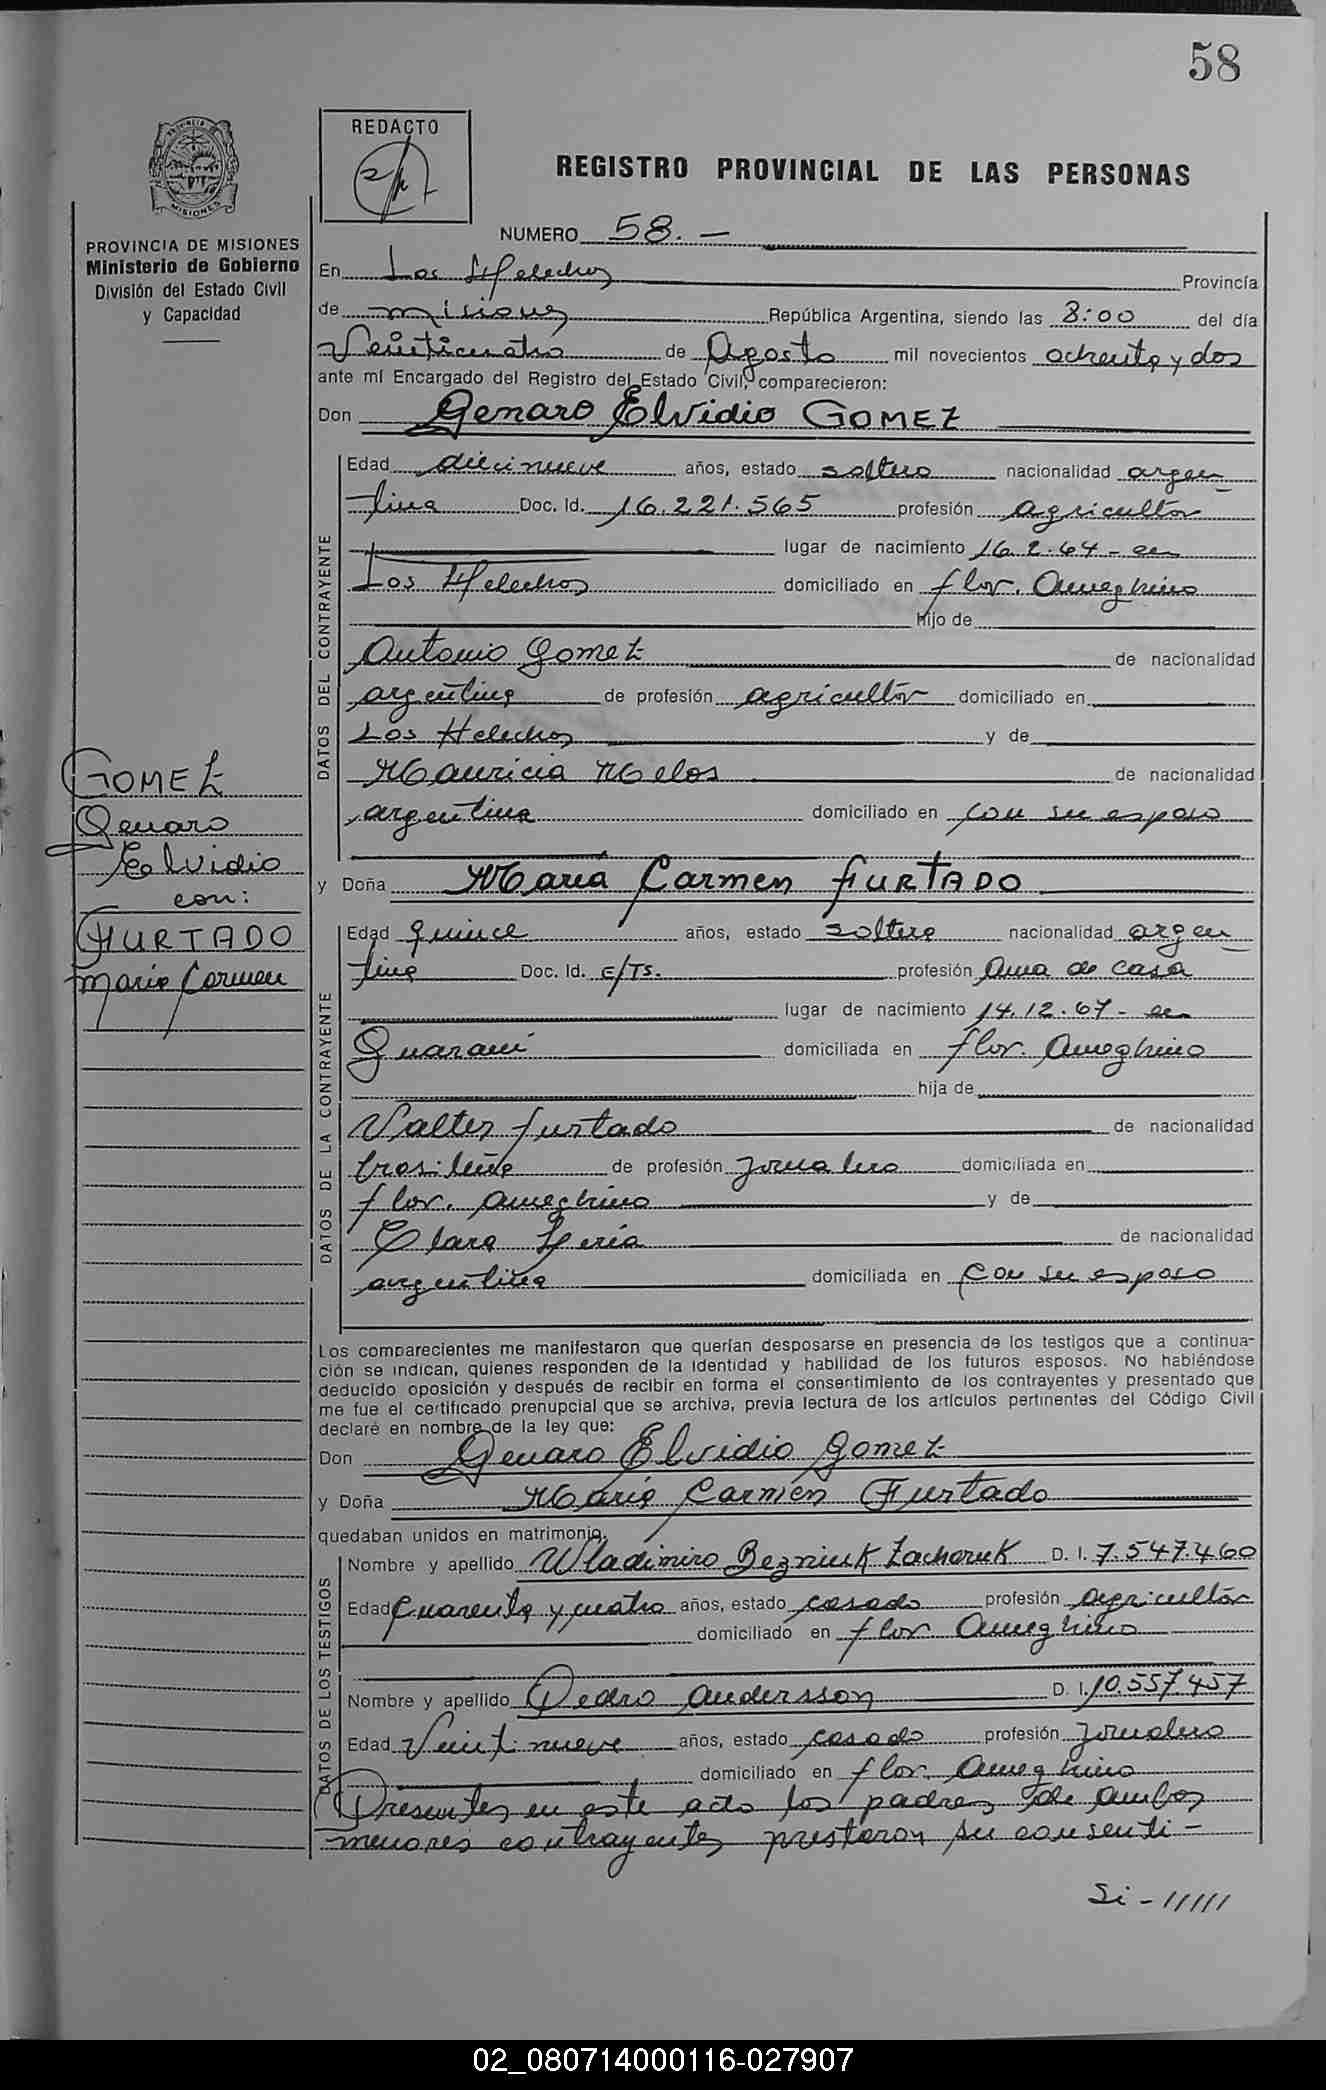 58
REDACTO
REGISTRO PROVINCIAL DE LAS PERSONAS
PROVINCIA DE MISIONES
MISIONES
PROVINCIA DE MISIONES
Ministerio de Gobierno
División del Estado Civil
y Capacidad
NUMERO 58.-
En Los Helechos Provincia
de misiones República Argentina, siendo las 8:00 del día
Veinticuatro de Agosto mil novecientos ochenta y dos
ante mí Encargado del Registro del Estado Civil, comparecieron:
Don Genaro Elvidio GOMEZ
DATOS DEL CONTRAYENTE
Edad diecinueve años, estado soltero nacionalidad argen
tina Doc. Id. 16.221.565 profesión agricultor
lugar de nacimiento 16.2.64 - en
Los Helechos domiciliado en flor. Ameghino
Hijo de
Antonio Gomez de nacionalidad
argentina de profesión agricultor domiciliado en
Los Helechos y de
Mauricia Melos de nacionalidad
argentina domiciliado en con su esposo
GOMEZ
Genaro
Elvidio
con:
FURTADO
Maria Carmen
y Doña Maria Carmen FURTADO
DATOS DE LA CONTRAYENTE
Edad quince años, estado soltera nacionalidad argen
tina Doc. Id. E/Ts. profesión Ama de casa
lugar de nacimiento 14.12.67 - en
Guarani domiciliada en flor. Ameghino
hija de
Valter furtado de nacionalidad
brasileña de profesión jornalero domiciliada en
flor. Ameghino y de
Clara de nacionalidad
argentina domiciliada en con su esposo
Los comparecientes me manifestaron que querían desposarse en presencia de los testigos que a continua-
ción se indican, quienes responden de la identidad y habilidad de los futuros esposos. No habiéndose
deducido oposición y después de recibir en forma el consentimiento de los contrayentes y presentado que
me fue el certificado prenupcial que se archiva, previa lectura de los artículos pertinentes del Código Civil
declaré en nombre de la ley que:
Don Genaro Elvidio Gomez
y Doña Maria Carmen Furtado
quedaban unidos en matrimonio.
DATOS DE LOS TESTIGOS
Nombre y apellido Wladimiro Bezniuk Zacharuk D. I. 7.547.460
Edad Cuarenta y cuatro años, estado casado profesión agricultor
domiciliado en flor. Ameghino
Nombre y apellido Pedro Andersson D. I. 10.557.457
Edad Veintinueve años, estado casado profesión jornalero
domiciliado en flor. Ameghino
Presentes en este acto los padres de ambos
menores contrayentes prestaron su consenti-
Si - //////
02_080714000116-027907